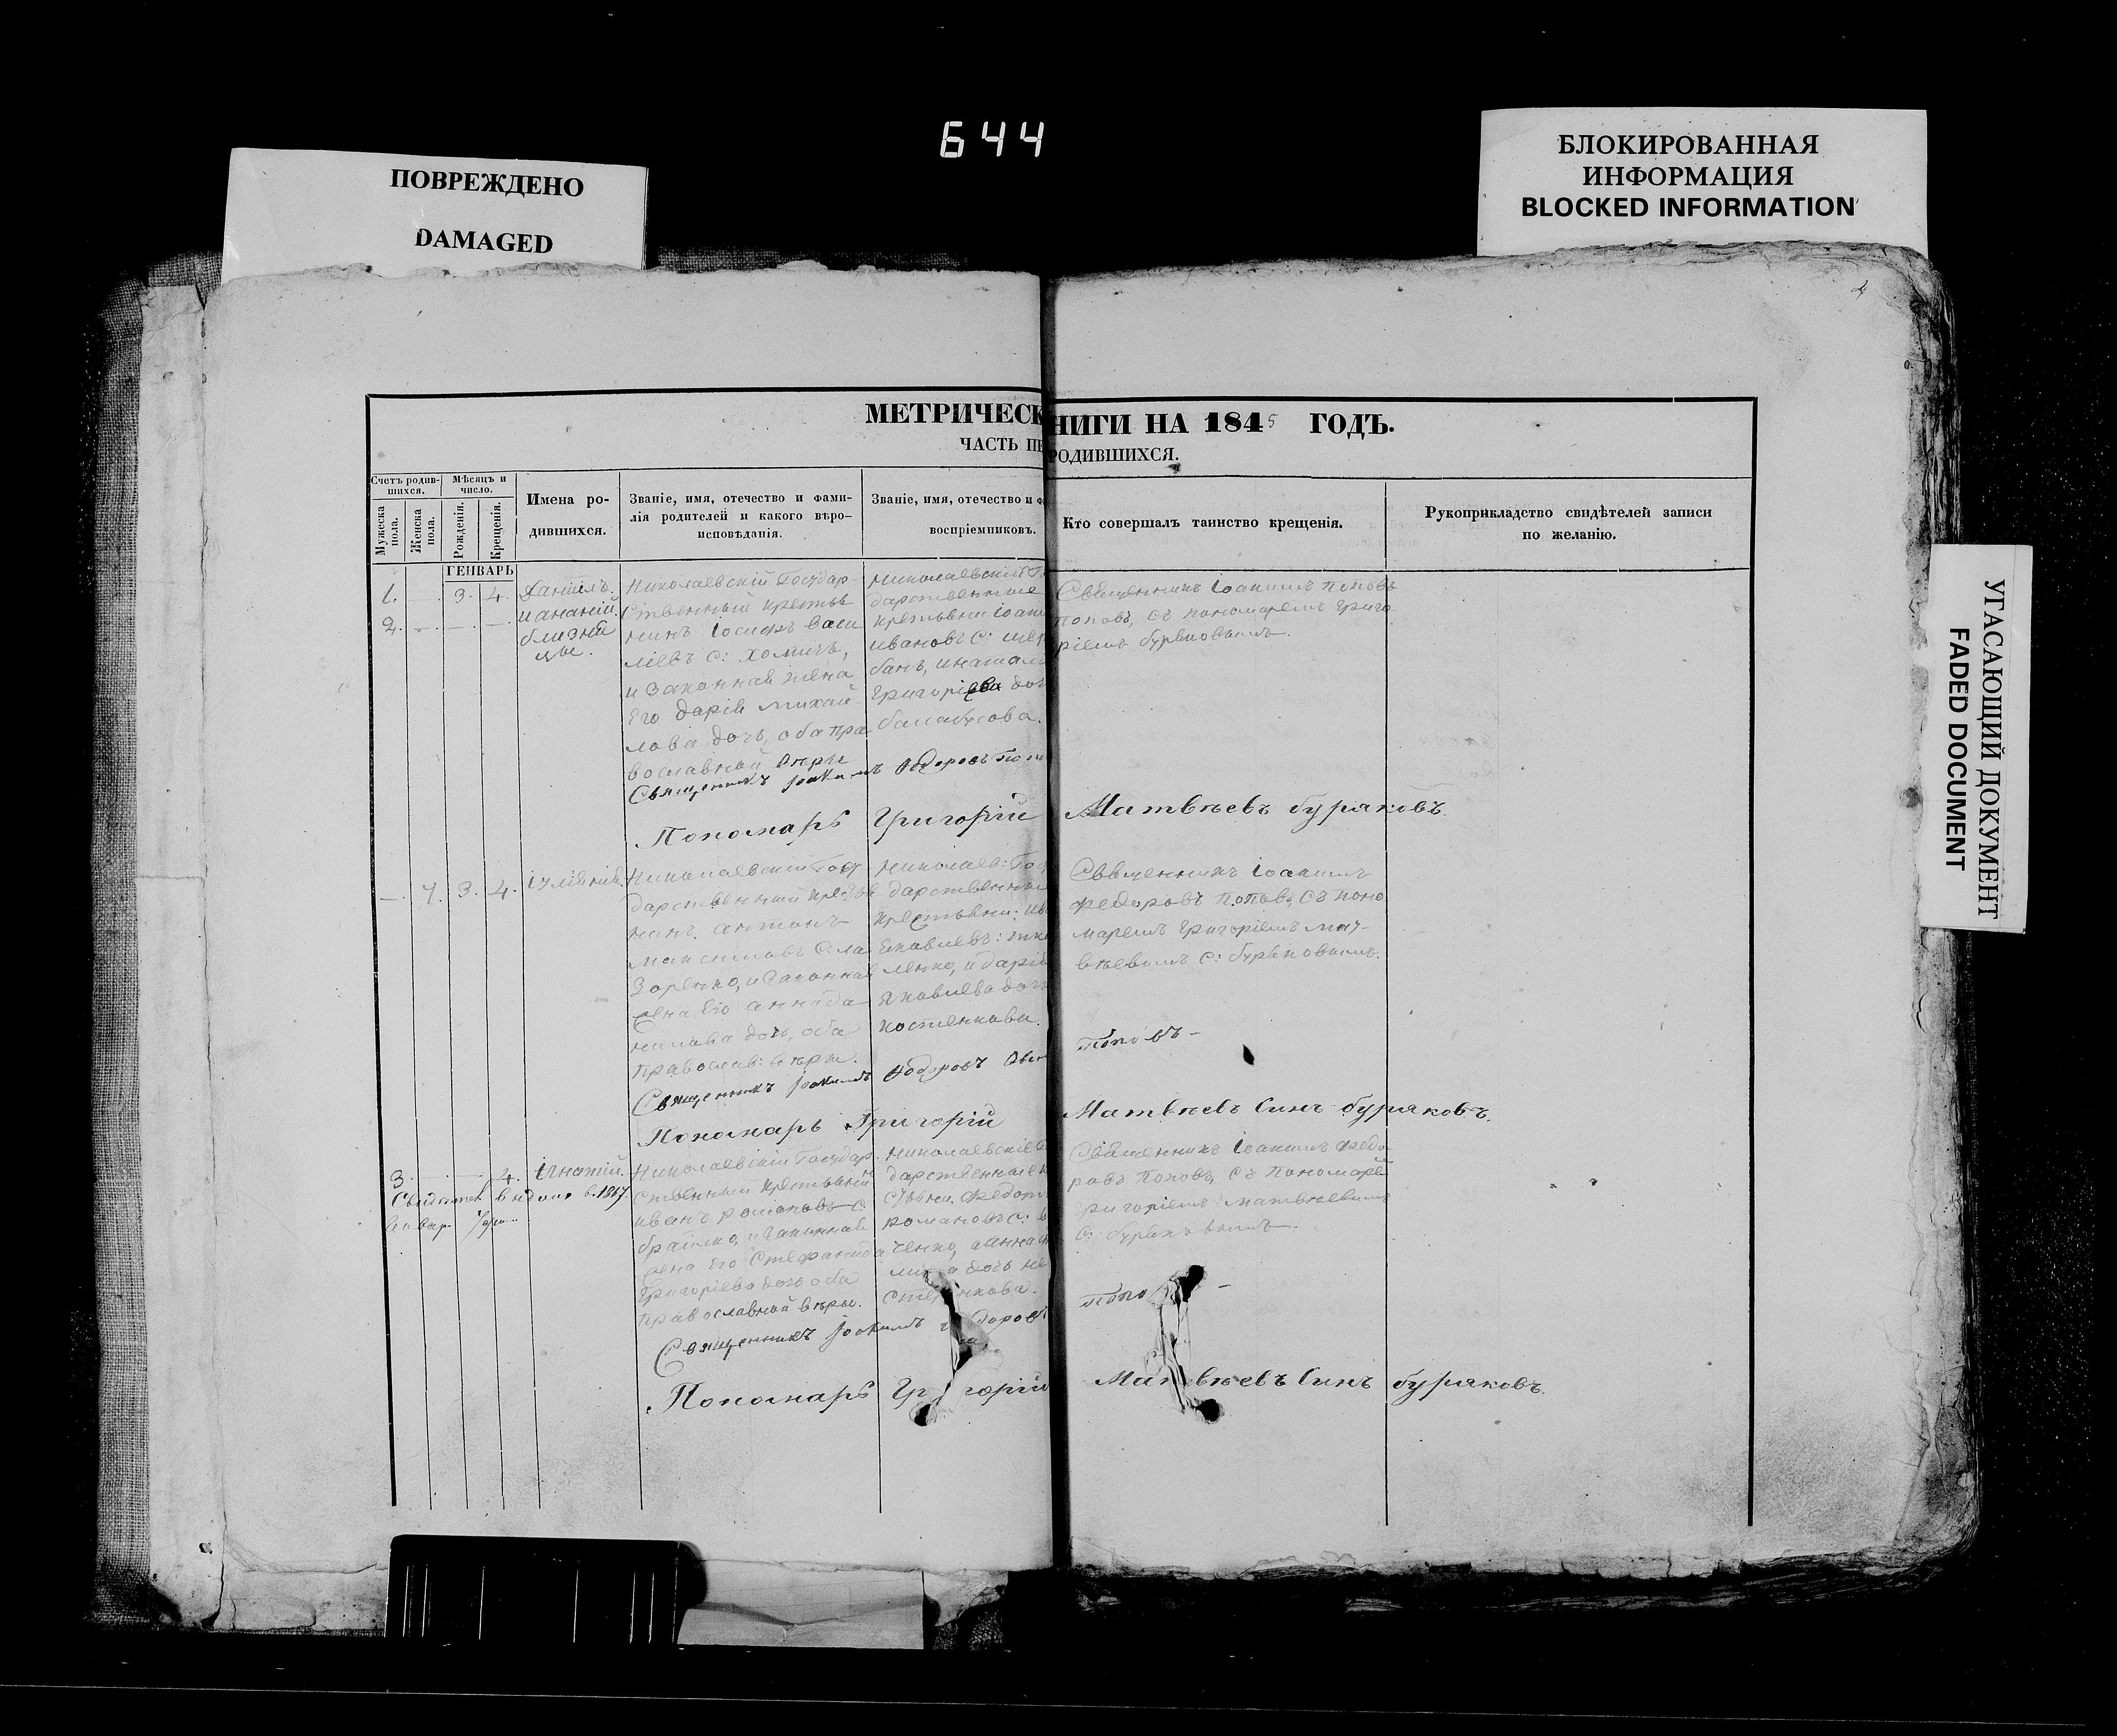 644
ПОВРЕЖДЕНО
DAMAGED
БЛОКИРОВАННАЯ
ИНФОРМАЦИЯ
BLOCKED INFORMATION
УГАСАЮЩИЙ ДОКУМЕНТ
FADED DOCUMENT
МЕТРИЧЕСК
НИГИ НА 1845 ГОДЪ.
ЧАСТЬ ПЕ
РОДИВШИХСЯ.
Счетъ родив-
шихся.
Мѣсяцъ и
число.
Мужеска
пола.
Женска
пола.
Рожденія.
Крещенія.
Имена ро-
дившихся.
Званіе, имя, отечество и фами-
лія родителей и какого вѣро-
исповѣданія.
Званіе, имя, отечество и ф
воспріемниковъ.
Кто совершалъ таинство крещенія.
Рукоприкладство свидѣтелей записи
по желанію.
ГЕНВАРЬ
1. 3. 4.
2.
Даніилъ.
и ананій
близне
цы.
Николаевскій Государ-
ственный крестья
нинъ Іосифъ Васи
ліевъ с: хомичъ,
и законная жена
Его дарія михай
лова дочь, оба пра
вославной вѣры
Николаевскій Го
дарственные
крестьяни Іоан
ивановъ с: щер
банъ, и наталі
Григоріева доч
балабусова.
Священникъ Іоакимъ Поповъ
Поповъ, съ пономаремъ Григо
ріемъ буряковымъ.
Священникъ Іоакимъ Ѳедоровъ По
Пономарь Григорій Матвѣевъ буряковъ.
1. 3. 4.
Іуліанія.
Николаевскій Госу
дарственный крестья
нинъ антонъ
максимовъ с: ла
зоренко, и законная
жена Его анна да
нилова дочь, оба
православ: вѣры.
Николаев: Го
дарственные
крестьяни: ив
Яковлевъ: тк
ленко, и дарія
Яковлева доч
костенкова.
Священникъ Іоакимъ
федоровъ Поповъ, съ поно
маремъ Григоріемъ мат-
вѣевымъ с: буряковымъ.
Священникъ Іоакимъ Ѳодоровъ
Поповъ-
Пономарь Григорій Матвѣевъ Синъ буряковъ.
3. 4.
Игнатій.
Свидѣтел. видано в. 1867.
Январ.
Николаевскій Государ
ственный крестьянин
иванъ романовъ с:
браійко, и законная
жена Его Стефанида
Григоріева дочь оба
православной вѣры.
Николаевскіе Г
дарственные к
стьяни. Федотъ
романовъ с: в
ченко, и анна
дочь не
Священникъ Іоакимъ Федо-
ровъ Поповъ, съ Пономаре
Григоріемъ матвѣевымъ
с: буряковымъ.
Священникъ Іоакимъ
Попо
Пономарь Григорій Матвѣевъ Синъ буряковъ.